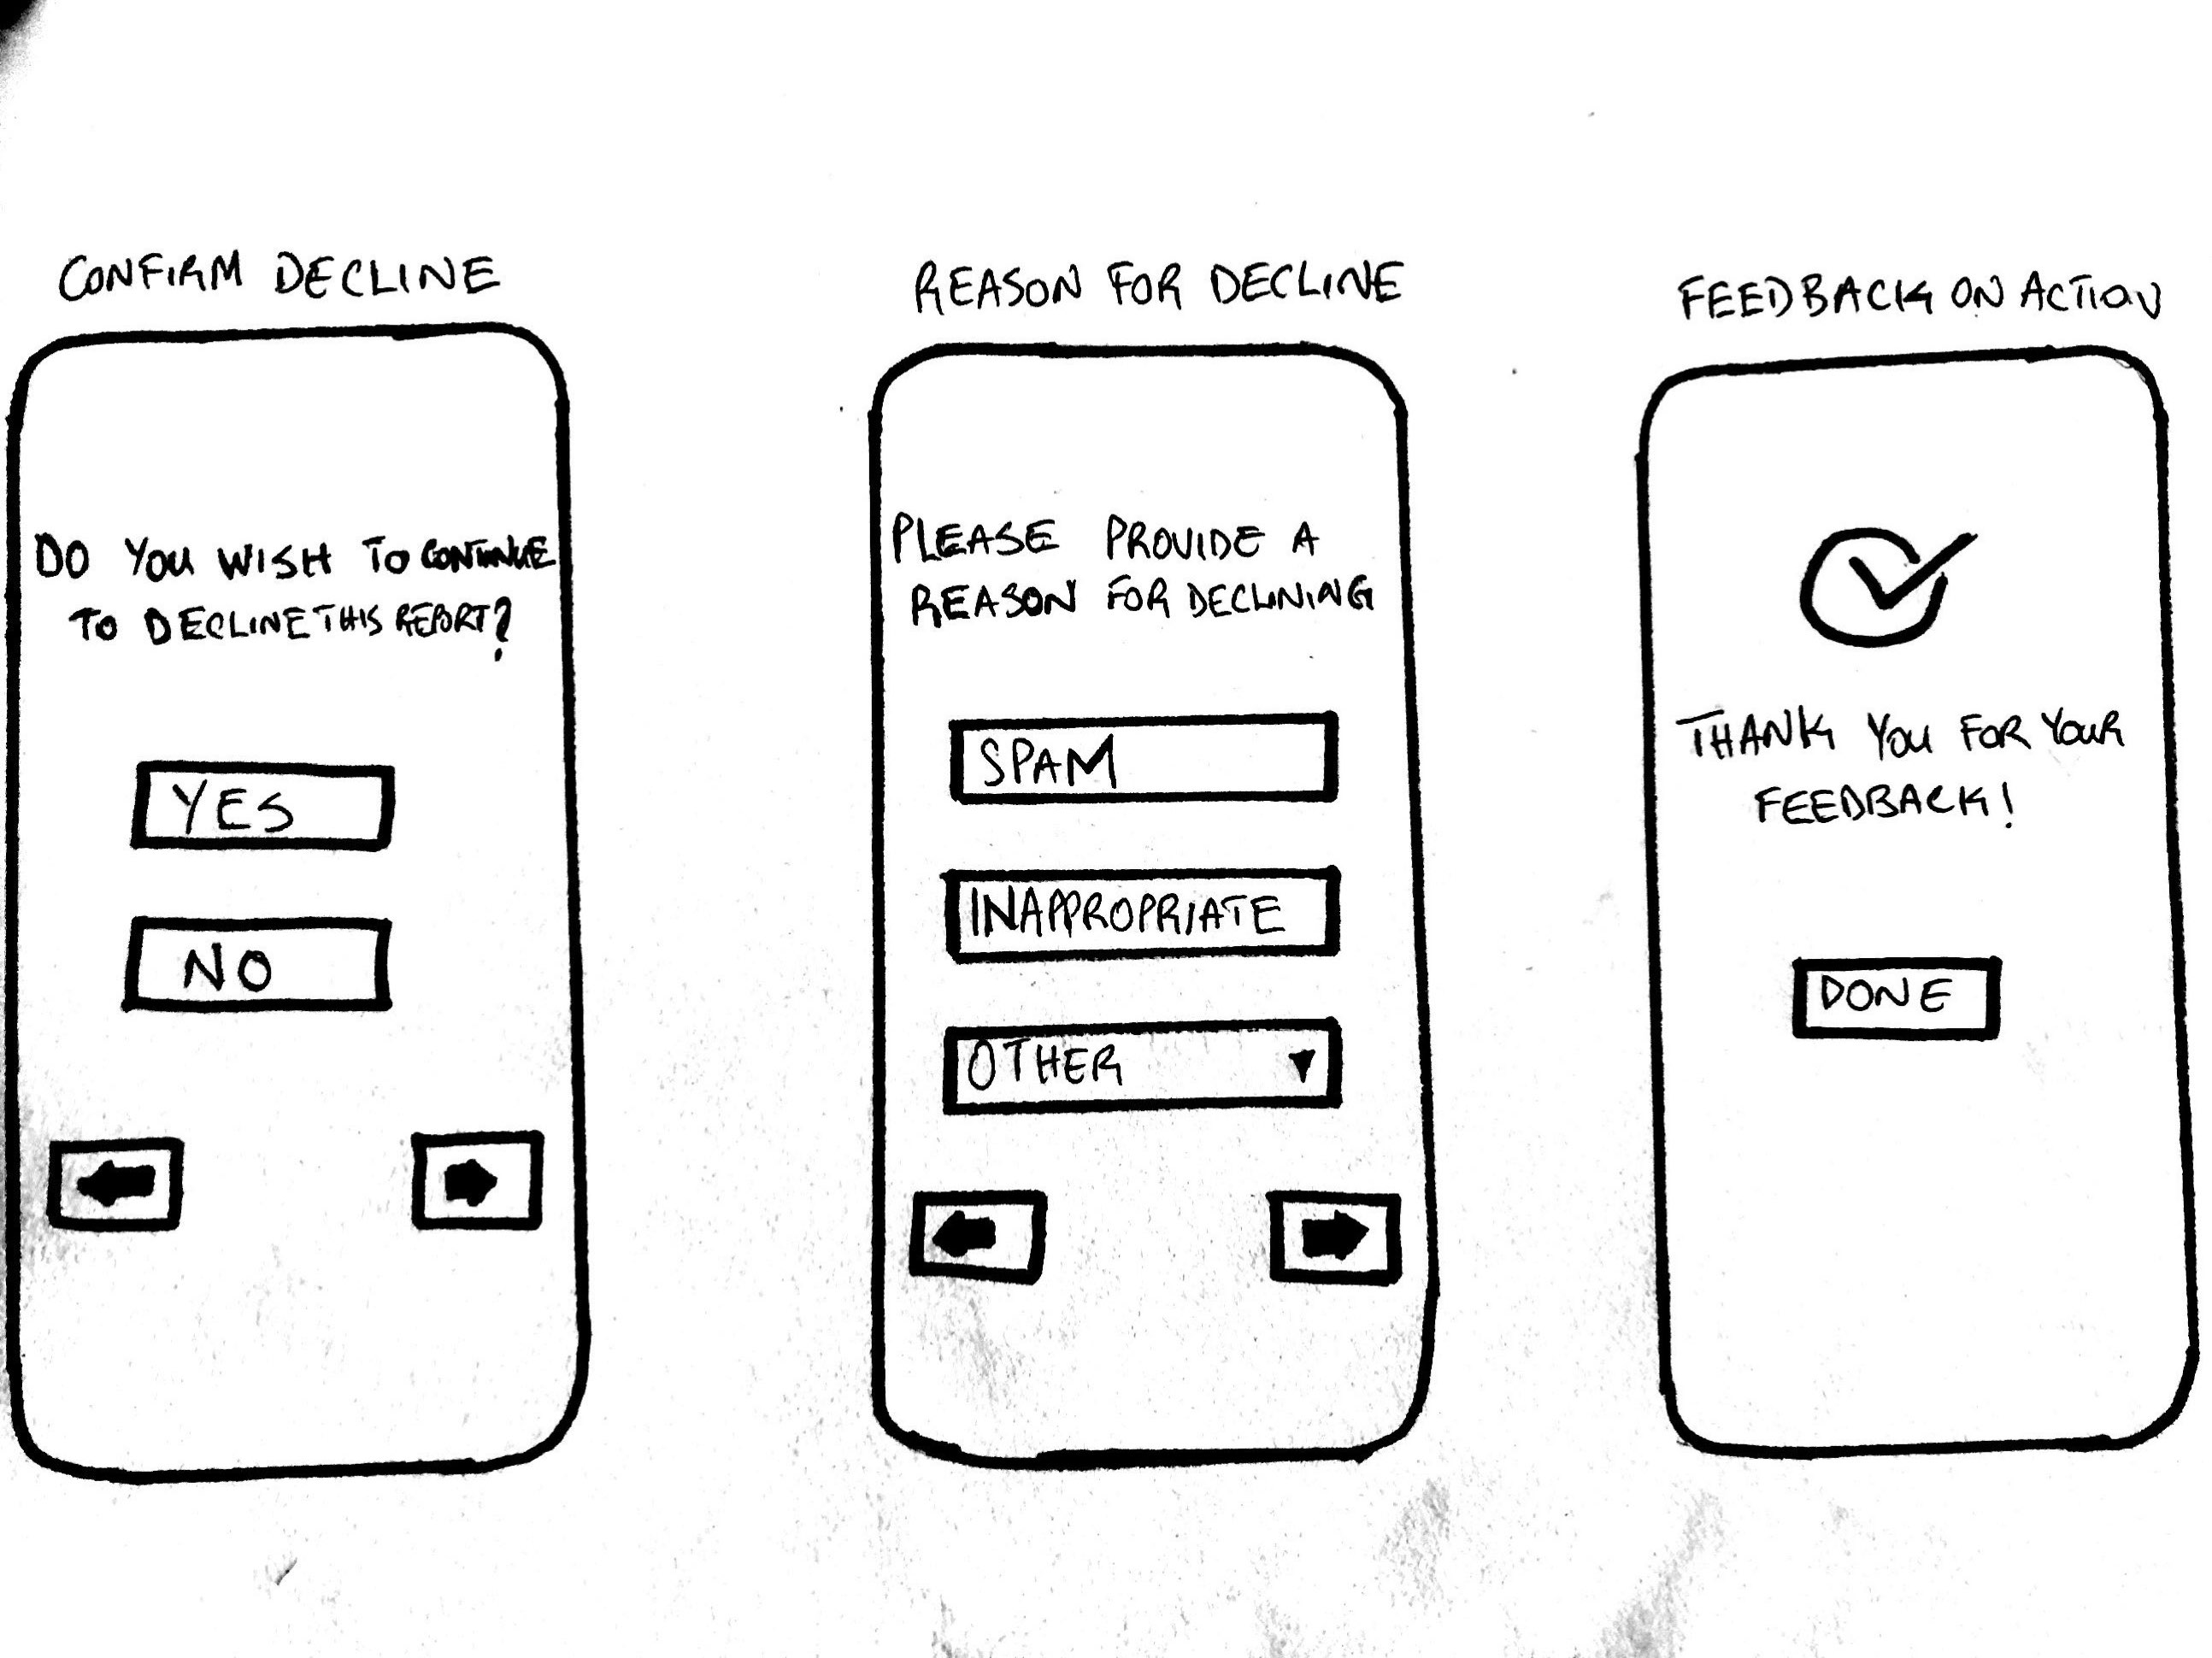 CONFIRM DECLINE
DO YOU WISH TO CONTINUE
TO DECLINE THIS REPORT?
YES
NO
REASON FOR DECLINE
PLEASE PROVIDE A
REASON FOR DECLINING
SPAM
INAPPROPRIATE
OTHER
FEEDBACK ON ACTION
THANK YOU FOR YOUR
FEEDBACK!
DONE